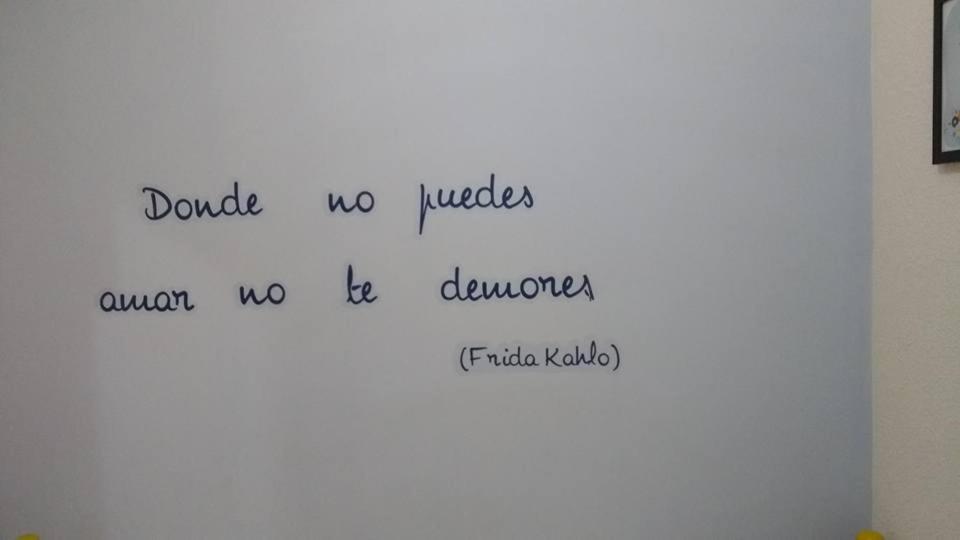 Donde no puedes
amar no te demores
(Frida Kahlo)